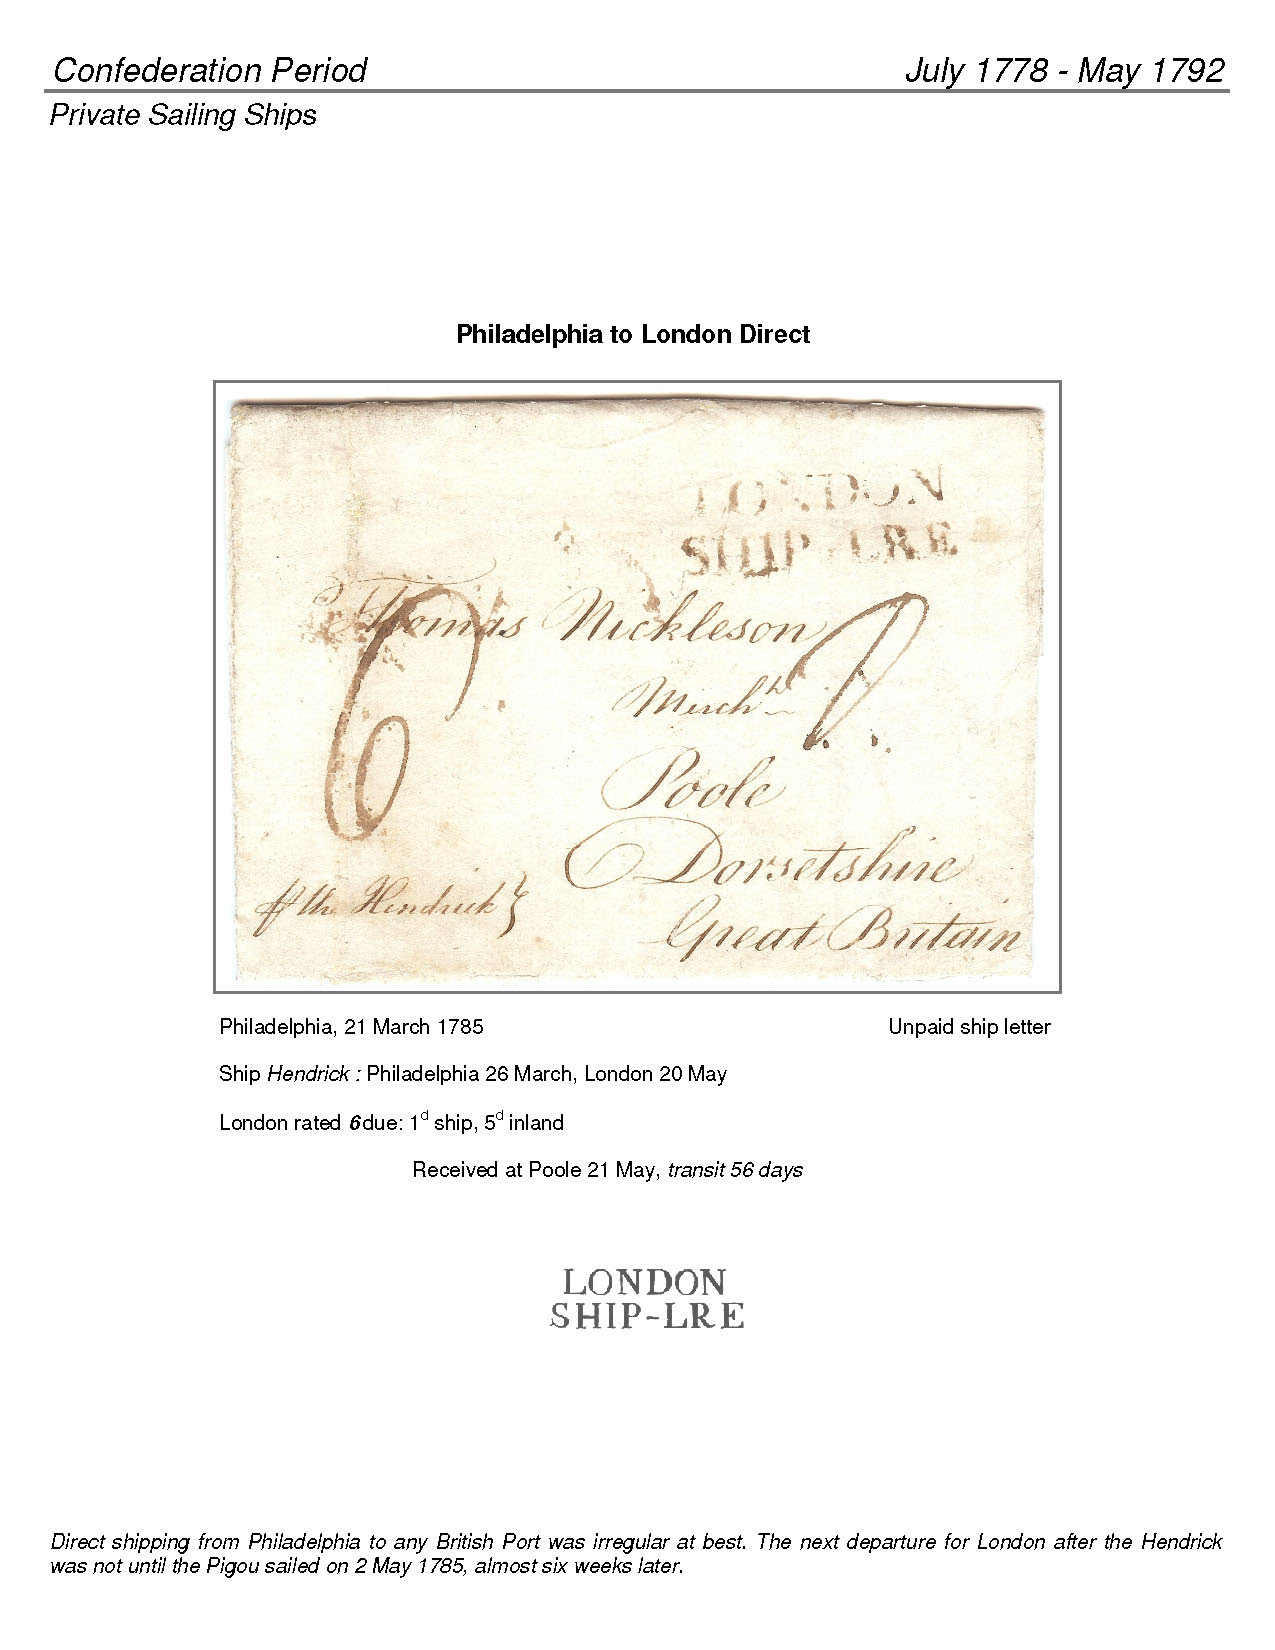 Confederation Period July 1778 - May 1792
Private Sailing Ships
Philadelphia to London Direct
LONDON
SHIP-LRE
Thomas Nickleson
Merch.t
Poole
Dorsetshire
Great Britain
6
the Hendrick
Philadelphia, 21 March 1785 Unpaid ship letter
Ship Hendrick : Philadelphia 26 March, London 20 May
London rated 6 due: 1d ship, 5d inland
Received at Poole 21 May, transit 56 days
LONDON
SHIP-LRE
Direct shipping from Philadelphia to any British Port was irregular at best. The next departure for London after the Hendrick
was not until the Pigou sailed on 2 May 1785, almost six weeks later.